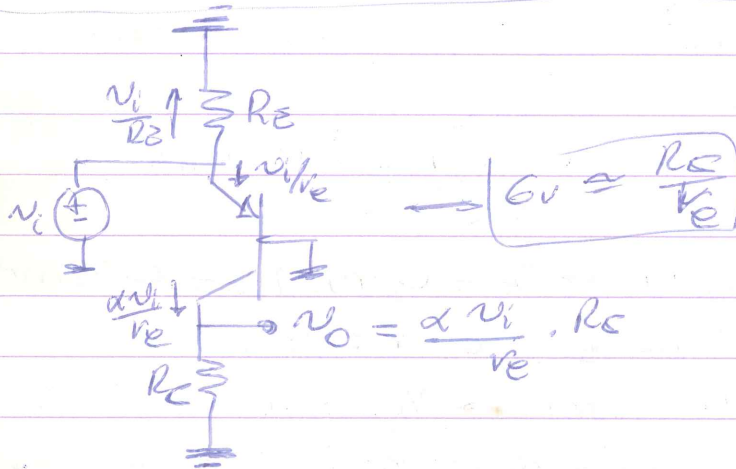 vi/RE
RE
vi/re
vi
Gv ≃ RC/re
αvi/re
vo = αvi/re . RC
RC